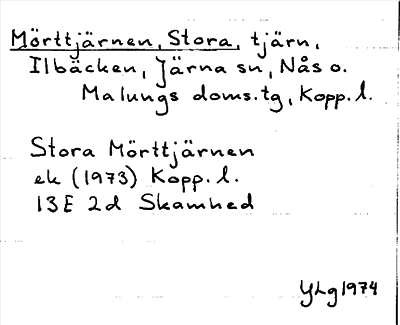 Mörttjärnen, Stora, tjärn,
Ilbäcken, Järna sn, Nås o.
Malungs doms.tg, Kopp.l.
Stora Mörttjärnen
ek (1973) Kopp.l.
13E 2d Skamhed
YLg 1974